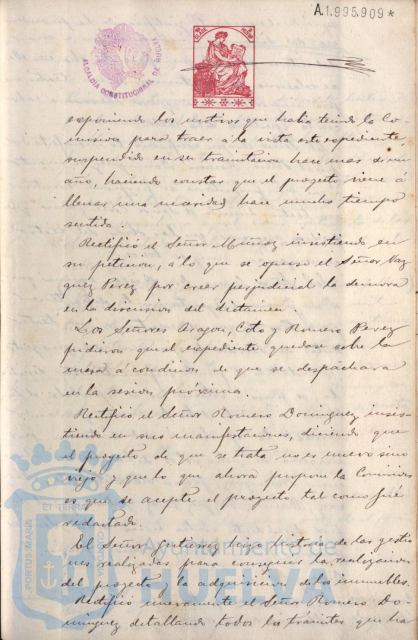 A.1.995.909*
ALCALDIA CONSTITUCIONAL DE HUELVA
exponiendo los motivos que había tenido la Co-
misión para traer á la vista este expediente,
suspendido en su tramitacion hace mas de un
año, haciendo constar que el proyecto viene á
llenar una necesidad hace mucho tiempo
sentida.
Rectificó el Señor Muñoz insistiendo en
su peticion, á lo que se opuso el Señor Vaz
quez Perez por creer perjudicial la demora
en la discusion del dictámen.
Los Señores Aragon, Coto y Romero Perez
pidieron que el expediente quedase sobre la
mesa á condicion de que se despachara
en la sesion próxima.
Rectificó el Señor Romero Dominguez insis-
tiendo en sus manifestaciones, diciendo que
el proyecto de que se trata no es nuevo sino
viejo y que lo que ahora propone la Comision
es que se acepte el proyecto tal como fué
redactado.
El Señor Gutierrez hizo historia de las gestio
nes realizadas para conseguir la realizacion
del proyecto y la adquisicion de los inmuebles.
Rectificó nuevamente el Señor Romero Do-
minguez detallando todos los trámites que ha
PORTUS MARIS ET TERRAE CUSTODIA
Ayuntamiento de
HUELVA